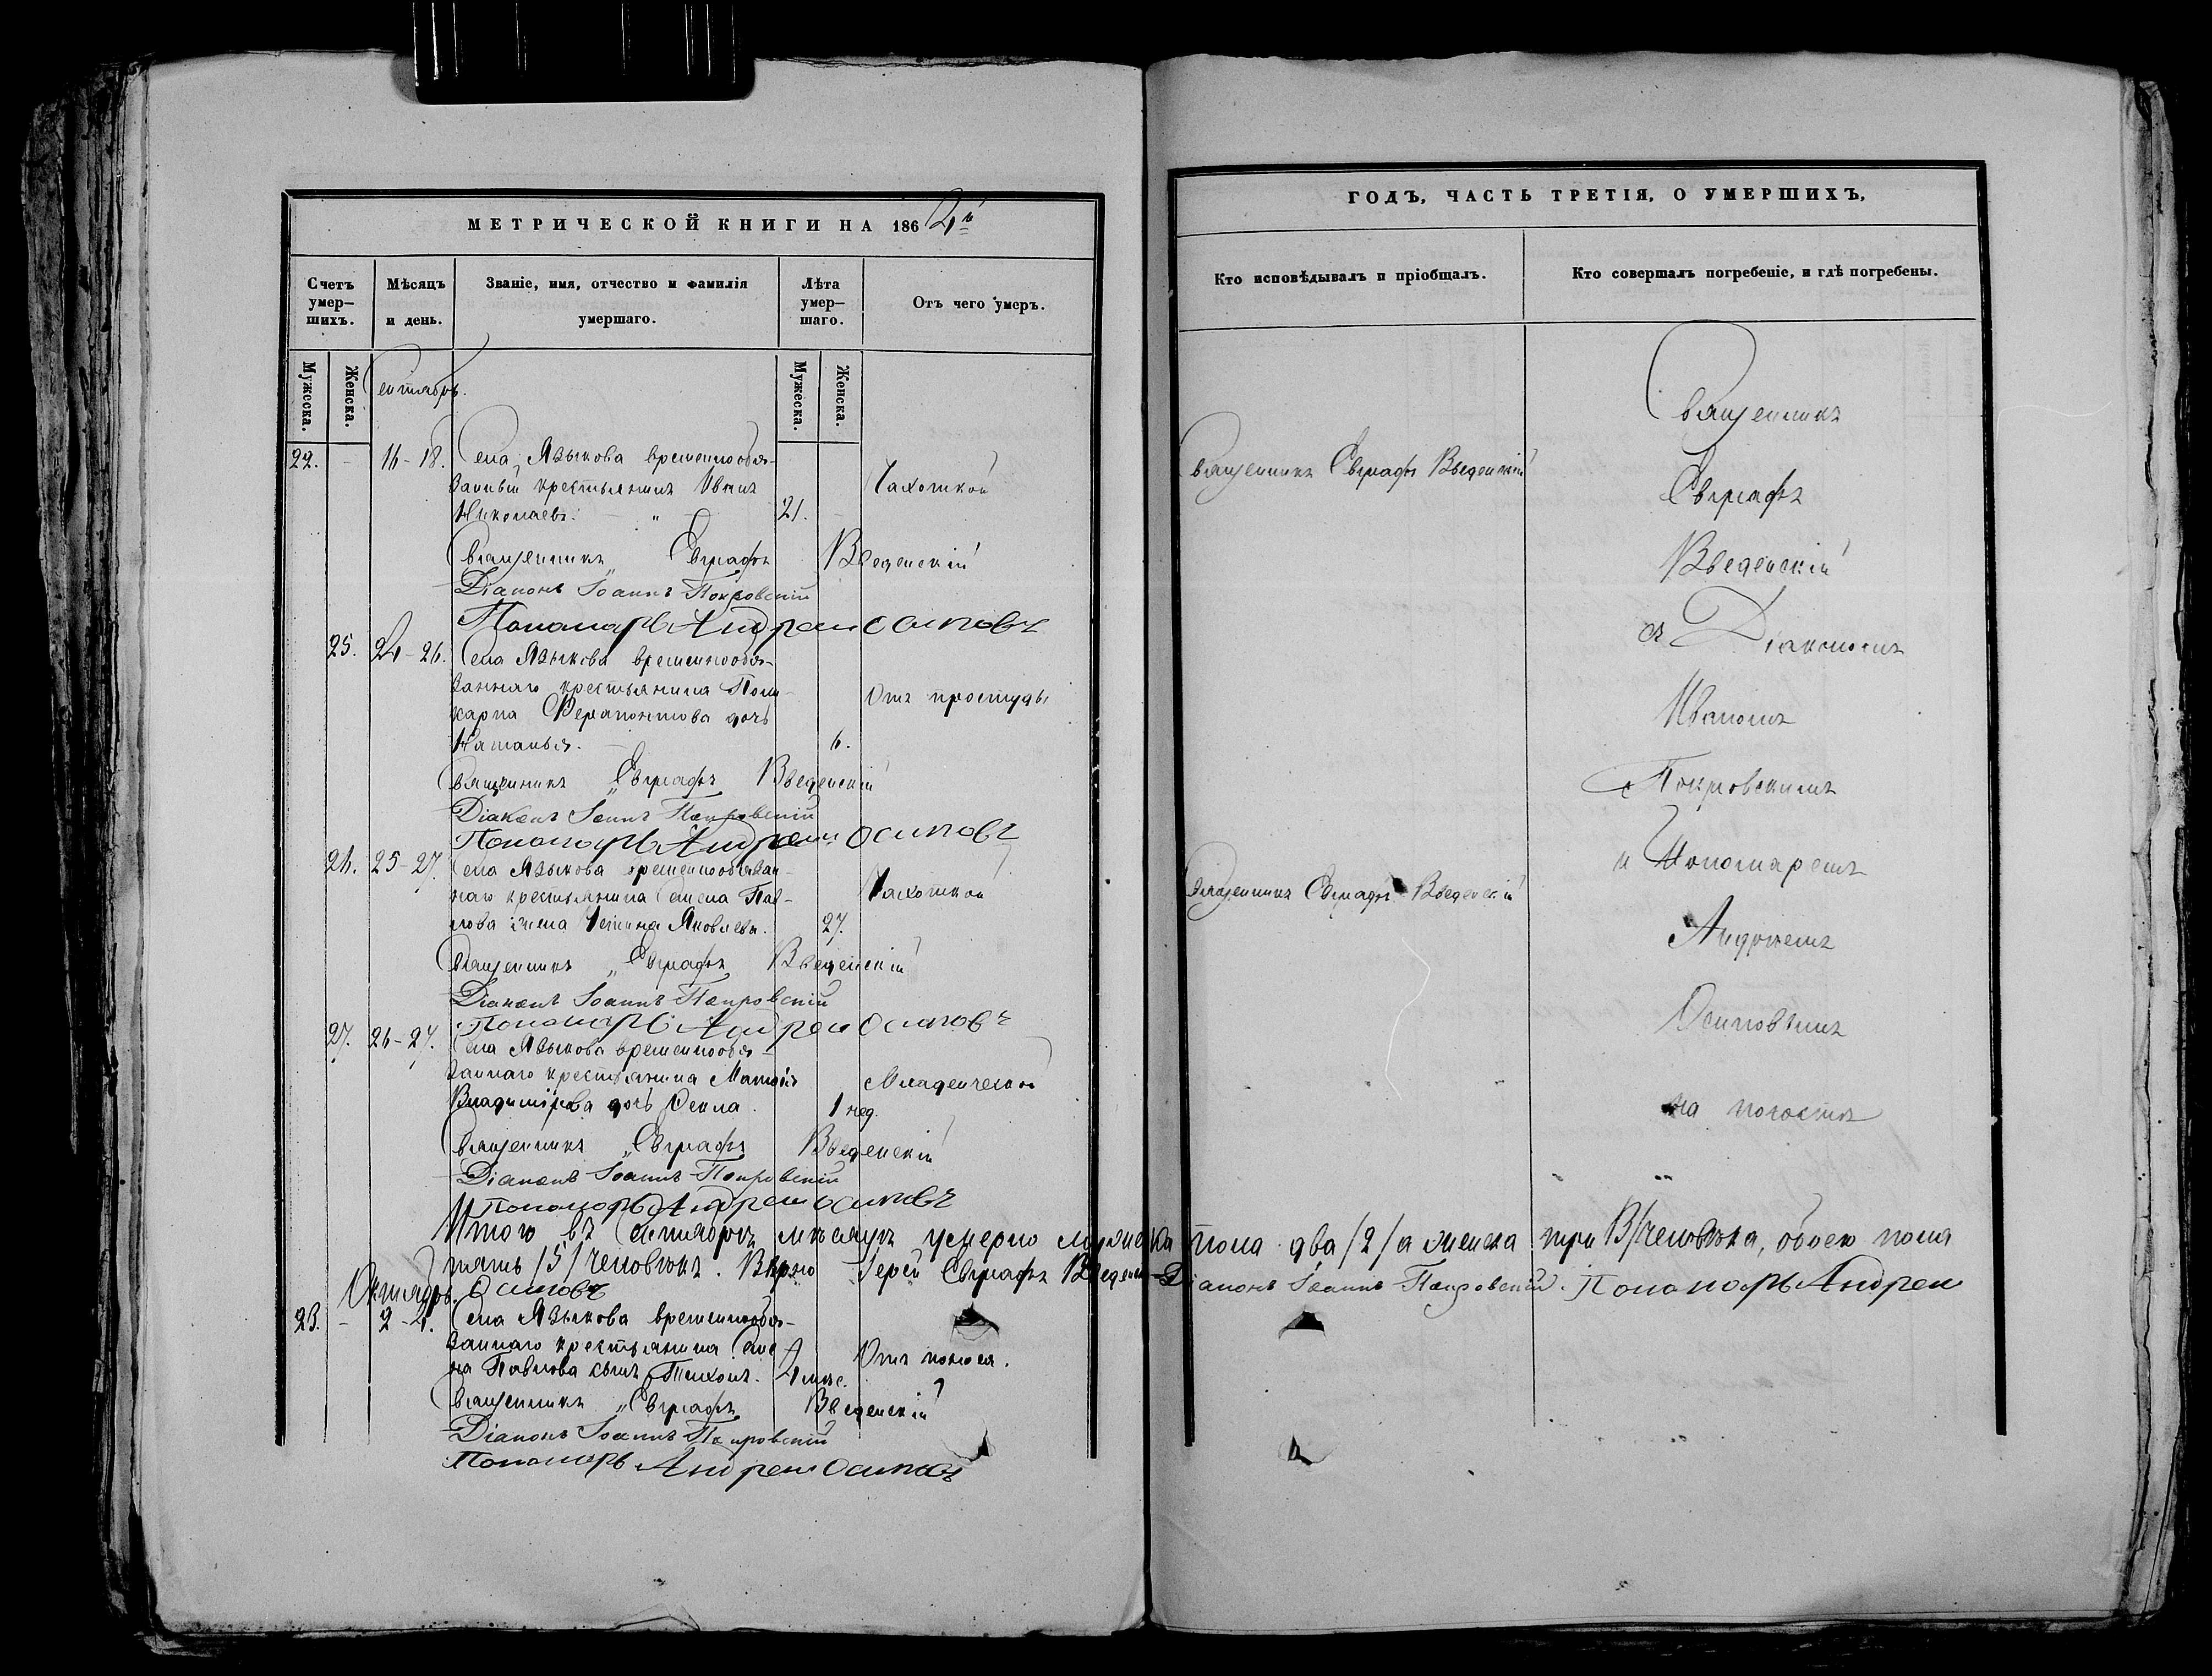 МЕТРИЧЕСКОЙ КНИГИ НА 1864й
Счетъ умер–шихъ.
Мѣсяцъ и день.
Званіе, имя, отчество и фамилія умершаго.
Лѣта умер–шаго.
Отъ чего умеръ.
Мужеска.
Женска.
Мужеска.
Женска.
Сентябрь.
22. - 16-18. Села Языкова временнообя-
занный крестьянинъ Иванъ Чахоткой
Николаевъ. 21.
Священникъ Евграфъ Введенскій
Діаконъ Іоаннъ Покровскій
Пономарь Андрей Осиповъ
25. 24-26. Села Языкова временнообя-
заннаго крестьянина Поли- Отъ простуды
карпа Ферапонтова дочь
Наталья. 6.
Священникъ Евграфъ Введенскій
Діаконъ Іоаннъ Покровскій
Пономарь Андрей Осиповъ
26. 25-27. Села Языкова временнообязан-
наго крестьянина Семена Пав- Чахоткой
лова жена Яковлева. 27.
Священникъ Евграфъ Введенскій
Діаконъ Іоаннъ Покровскій
Пономарь Андрей Осиповъ
27. 26-27. Села Языкова временнообя-
заннаго крестьянина Младенческой
Владимірова дочь Фекла. 1 нед.
Священникъ Евграфъ Введенскій
Діаконъ Іоаннъ Покровскій
Пономарь Андрей Осиповъ
Итого въ Сентябрѣ мѣсяцѣ умерло мужеска пола два /2/ а женска три /3/ человѣка, обоего пола
пять /5/ человѣкъ. Вѣрно Іерей Евграфъ Введенскій Діаконъ Іоаннъ Покровскій. Пономарь Андрей
Осиповъ
Октябрь.
23. - 2-4. Села Языкова временнообя-
заннаго крестьянина Семе- Отъ поноса.
на Павлова сынъ Тихонъ. 4 мѣс.
Священникъ Евграфъ Введенскій
Діаконъ Іоаннъ Покровскій
Пономарь Андрей Осиповъ
ГОДЪ, ЧАСТЬ ТРЕТІЯ, О УМЕРШИХЪ,
Кто исповѣдывалъ и пріобщалъ.
Кто совершалъ погребеніе, и гдѣ погребены.
Священникъ Евграфъ Введенскій
Священникъ Евграфъ Введенскій
Священникъ
Евграфъ
Введенскій
съ Діакономъ
Иваномъ
Покровскимъ
и Пономаремъ
Андреемъ
Осиповымъ
на погостѣ